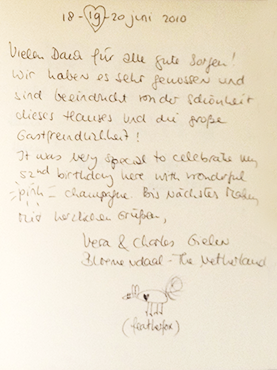 18-19-20 juni 2010
Vielen Dank für alle gute Sorgen!
Wir haben es sehr genossen und
sind beeindruckt von der Schönheit
dieses Hauses und die große
Gastfreundlichkeit!
It was very special to celebrate my
52nd birthday here with wonderful
pink champagne. Bis nächstes Mal
mit herzlichen Grüßen,
Vera & Charles Gielen
Bloemendaal - The Netherland
(featherfox)